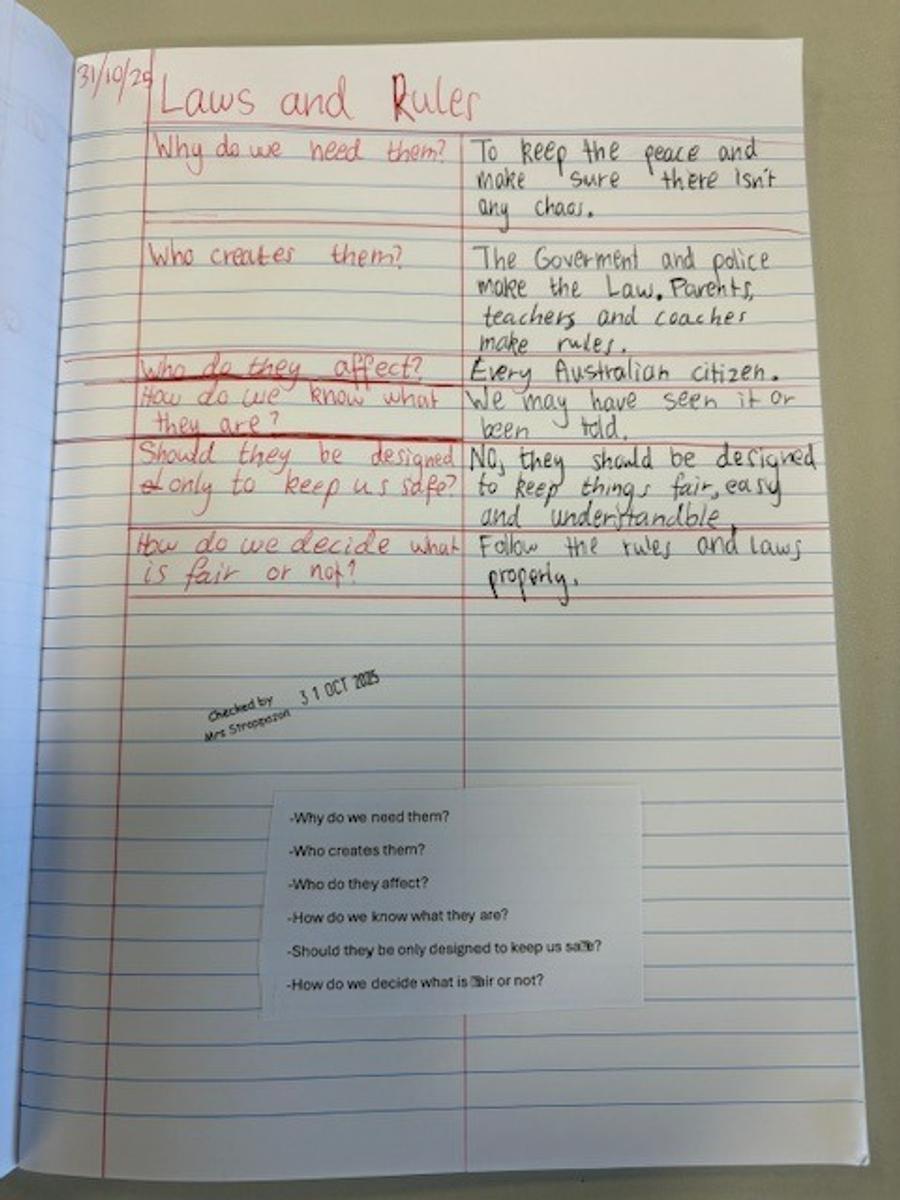 31/10/25
Laws and Rules
Why do we need them?
To keep the peace and
make sure there isn't
any chaos.
Who creates them?
The Goverment and police
make the Law. Parents,
teachers and coaches
make rules.
Who do they affect?
Every Australian citizen.
How do we know what
they are?
We may have seen it or
been told.
Should they be designed
only to keep us safe?
No, they should be designed
to keep things fair, easy
and understandble.
How do we decide what
is fair or not?
Follow the rules and laws
properly.
Checked by
Mrs Strappazon
31 OCT 2025
-Why do we need them?
-Who creates them?
-Who do they affect?
-How do we know what they are?
-Should they be only designed to keep us
-How do we decide what is or not?